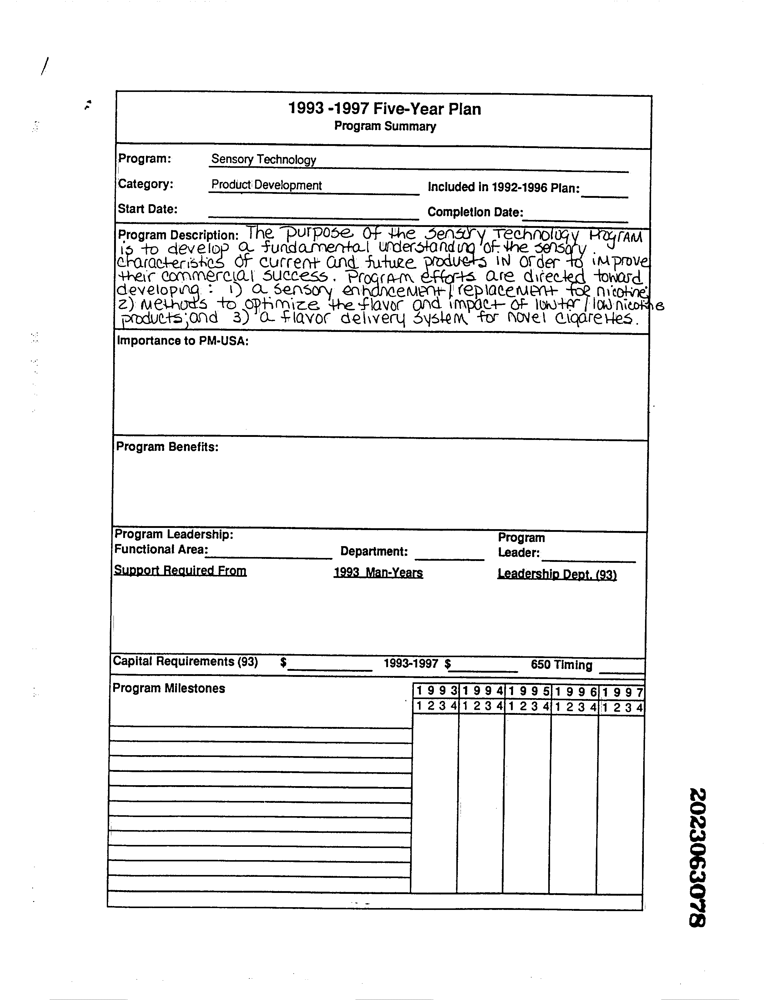 /
1993 -1997 Five-Year Plan
Program Summary
Program: Sensory Technology
Category: Product Development Included in 1992-1996 Plan:
Start Date: Completion Date:
Program Description: The purpose of the Sensory Technology Program
is to develop a fundamental understanding of the sensory
characteristics of current and future products in order to improve
their commercial success. Program efforts are directed toward
developing: 1) a sensory enhancement/replacement for nicotine;
2) methods to optimize the flavor and impact of low tar/low nicotine
products; and 3) a flavor delivery system for novel cigarettes.
Importance to PM-USA:
Program Benefits:
Program Leadership: Program
Functional Area: Department: Leader:
Support Required From 1993 Man-Years Leadership Dept. (93)
Capital Requirements (93) $ 1993-1997 $ 650 Timing
Program Milestones 1 9 9 3 1 9 9 4 1 9 9 5 1 9 9 6 1 9 9 7
1 2 3 4 1 2 3 4 1 2 3 4 1 2 3 4 1 2 3 4
2023063078